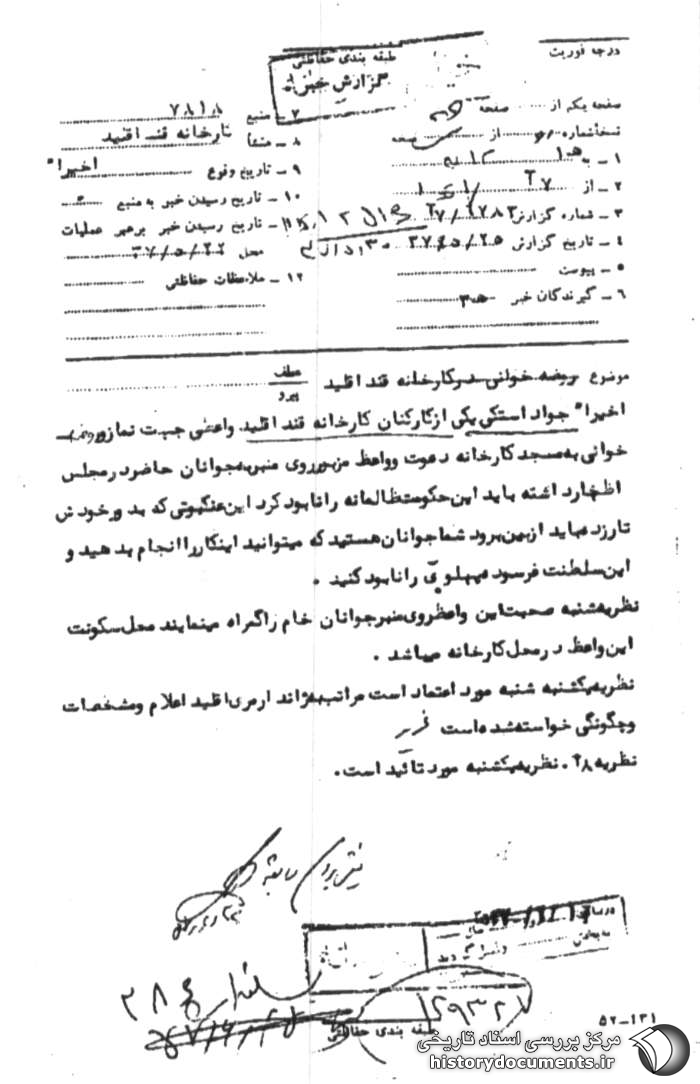 درجه فوریت
طبقه بندی حفاظتی
گزارش خبر
صفحه یکم از صفحه
نسخه شماره از نسخه
۱ – به
۲ – از
۳ – شماره گزارش
۴ – تاریخ گزارش
۵ – پیوست
۶ – گیرندگان خبر
۷ – منبع ۷۸۱۸
۸ – منشأ کارخانه قند اقلید
۹ – تاریخ وقوع اخیرا"
۱۰ – تاریخ رسیدن خبر به منبع
– تاریخ رسیدن خبر برهبر عملیات
محل
۱۲ – ملاحظات حفاظتی
عطف
پیرو
موضوع روضه خوانی در کارخانه قند اقلید
اخیرا" جواد استکی یکی از کارکنان کارخانه قند اقلید. واعظی جهت نماز و روضه
خوانی به مسجد کارخانه دعوت و واعظ مزبور روی منبر به جوانان حاضر در مجلس
اظهارداشته باید این حکومت ظالمانه را نابود کرد این عنکبوتی که بدور خودش
تار زده باید از بین برود شما جوانان هستید که میتوانید اینکار را انجام بدهید و
این سلطنت فرسوده پهلوی را نابود کنید .
نظریه شنبه صحبت این واعظ روی منبر جوانان خام را گمراه مینمایند محل سکونت
این واعظ در محل کارخانه میباشد .
نظریه یکشنبه شنبه مورد اعتماد است مراتب به ژاندارمری اقلید اعلام و مشخصات
و چگونگی خواسته شده است
نظریه ۲۸ . نظریه یکشنبه مورد تائید است .
طبقه بندی حفاظتی
۵۲–۱۳۱
مرکز بررسی اسناد تاریخی
historydocuments.ir